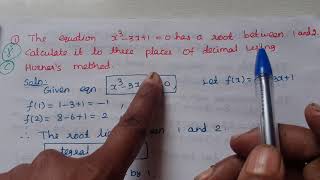 ① The equation x³-3x+1=0 has a root between 1 and 2.
Calculate it to three places of decimal using
Horner's method.
Soln:
Given eqn x³-3x 0 Let f(x)= 3x+1
f(1) = 1-3+1 = -1,
f(2) = 8-6+1 = 2
∴ The root lies between 1 and 2.
tegral
by 1